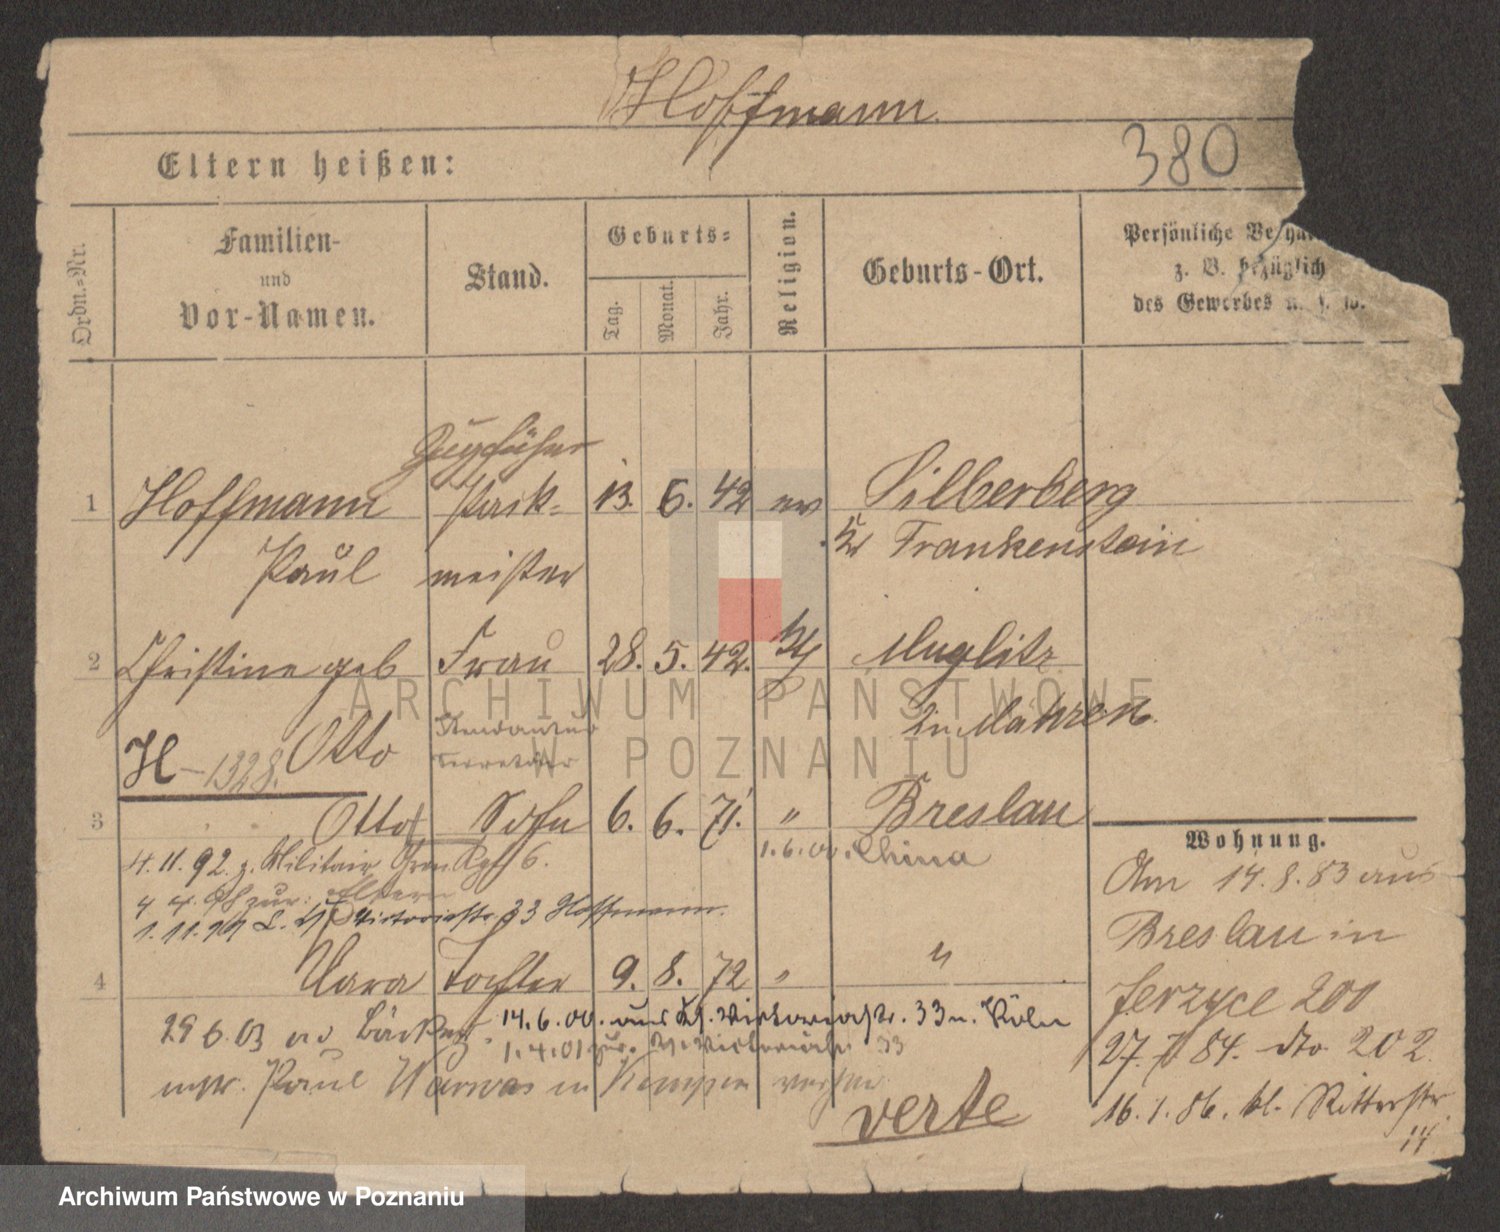 Hoffmann.
380
Eltern heißen:
Ordn.-Nr.
Familien-
und
Vor-Namen.
Stand.
Geburts-
Tag.
Monat.
Jahr.
Religion.
Geburts-Ort.
Persönliche Verhä
z. B. bezüglich
des Gewerbes u. s. w.
Zugführer
1 Hoffmann Pack- 13. 6. 42 ev Silberberg
Paul meister Kr Frankenstein
2 Christine geb Frau 28. 5. 42. Muglitz
Otto in Mähren.
H-1328.
3 Otto Sohn 6. 6. 71. " Breslau
1.6.00. China
4.11.92. z. Militair Gren Rgt 6.
Eltern
Victoriastr. 33 Hoffmann.
4 Clara Tochter 9. 8. 72 " "
29 6.03 Bäcker
14.6.00. aus Victoriastr. 33 n. Köln
1.4.01 zur. Victoriastr. 33
mstr. Paul in Kempen
verte
Wohnung.
Am 14.8.83 aus
Breslau in
Jerzyce 200
27. 7 84. dto 202.
16.1.86. kl. Ritterstr.
14
ARCHIWUM PAŃSTWOWE
W POZNANIU
Archiwum Państwowe w Poznaniu